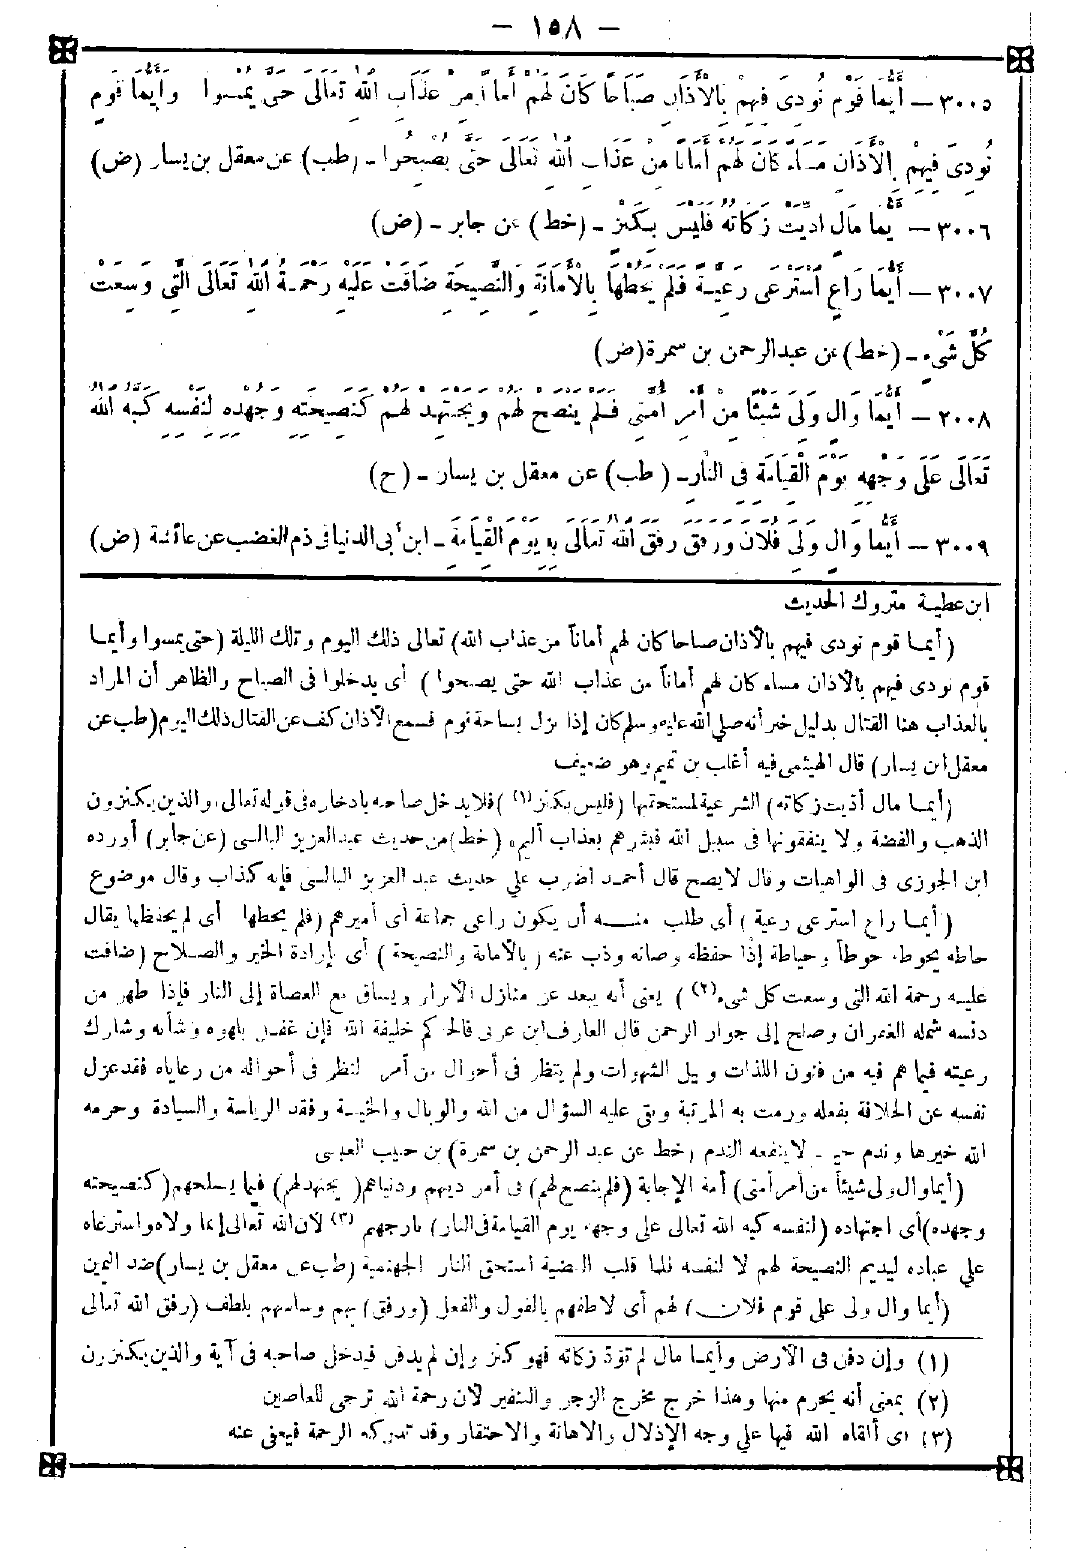 — ١٥٨ —
٣٠٠٥ — أَيُّمَا قَوْمٍ نُودِىَ فِيهِمْ بِالْأَذَانِ صَبَاحًا كَانَ لَهُمْ أَمَانًا مِنْ عَذَابِ اللهِ تَعَالَى حَتَّى يُمْسُوا وَأَيُّمَا قَوْمٍ
نُودِىَ فِيهِمْ بِالْأَذَانِ مَسَاءً كَانَ لَهُمْ أَمَانًا مِنْ عَذَابِ اللهِ تَعَالَى حَتَّى يُصْبِحُوا ـ (طب) عن معقل بن يسار (ض)
٣٠٠٦ — أَيُّمَا مَالٍ أُدِّيَتْ زَكَاتُهُ فَلَيْسَ بِكَنْزٍ ـ (خط) عن جابر ـ (ض)
٣٠٠٧ — أَيُّمَا رَاعٍ اسْتُرْعِىَ رَعِيَّةً فَلَمْ يَحُطْهَا بِالْأَمَانَةِ وَالنَّصِيحَةِ ضَاقَتْ عَلَيْهِ رَحْمَةُ اللهِ تَعَالَى الَّتِي وَسِعَتْ
كُلَّ شَيْءٍ ـ (خط) عن عبدالرحمن بن سمرة (ض)
٣٠٠٨ — أَيُّمَا وَالٍ وَلِىَ شَيْئًا مِنْ أَمْرِ أُمَّتِى فَلَمْ يَنْصَحْ لَهُمْ وَيَجْتَهِدْ لَهُمْ كَنَصِيحَتِهِ وَجَهْدِهِ لِنَفْسِهِ كَبَّهُ اللهُ
تَعَالَى عَلَى وَجْهِهِ يَوْمَ الْقِيَامَةِ فِى النَّارِ ـ (طب) عن معقل بن يسار ـ (ح)
٣٠٠٩ — أَيُّمَا وَالٍ وَلِىَ فَلَانَ وَرَفَقَ رَفَقَ اللهُ تَعَالَى بِهِ يَوْمَ الْقِيَامَةِ ـ ابن أبى الدنيا فى ذم الغضب عن عائشة (ض)
ابن عطية متروك الحديث
(أيما قوم نودى فيهم بالأذان صباحا كان لهم أماناً من عذاب الله) تعالى ذلك اليوم وتلك الليلة (حتى يمسوا وأيما
قوم نودى فيهم بالأذان مساء كان لهم أماناً من عذاب الله حتى يصبحوا) أى يدخلوا فى الصباح والظاهر أن المراد
بالعذاب هنا القتال بدليل خبر أنه صلى الله عليه وسلم كان إذا نزل بساحة قوم فسمع الأذان كف عن القتال ذلك اليوم (طب عن
معقل ابن يسار) قال الهيثمى فيه أغلب بن تميم وهو ضعيف
(أيما مال أديت زكاته) الشرعية لمستحقها (فليس بكنز (١)) فلا يدخل صاحبه بادخاره فى قوله تعالى، والذين يكنزون
الذهب والفضة ولا ينفقونها فى سبيل الله فبشرهم بعذاب أليم، (خط) من حديث عبد العزيز البالسى (عن جابر) أورده
ابن الجوزى فى الواهيات وقال لا يصح قال أحمد اضرب على حديث عبد العزيز البالسى فإنه كذاب وقال موضوع
(أيما راع استرعى رعية) أى طلب منه أن يكون راعى جماعة أى أميرهم (فلم يحطها) أى لم يحفظها يقال
حاطه يحوطه حوطاً وحياطة إذا حفظه وصانه وذب عنه (بالأمانة والنصيحة) أى بإرادة الخير والصلاح (ضاقت
عليه رحمة الله التى وسعت كل شىء (٢)) يعنى أنه يبعد عن منازل الأبرار ويساق مع العصاة إلى النار فإذا طهر من
دنسه شمله الغفران وصلح إلى جوار الرحمن قال العارف ابن عربى فالحاكم خليفة الله فإن غفل بلهوه وشأنه وشارك
رعيته فيما هم فيه من فنون اللذات ونيل الشهوات ولم ينظر فى أحوال من أمر لنظر فى أحواله من رعاياه فقد عزل
نفسه عن الخلافة بفعله ورمت به المرتبة وبقى عليه السؤال من الله والوبال والخيبة وفقد الرياسة والسيادة وحرمه
الله خيرها وندم حيث لا ينفعه الندم (خط عن عبد الرحمن بن سمرة) بن حبيب العبسى
(أيما وال ولى شيئاً من أمر أمتى) أمة الإجابة (فلم ينصح لهم) فى أمر دينهم ودنياهم (يجتهد لهم) فيما يصلحهم (كنصيحته
وجهده) أى اجتهاده (لنفسه كبه الله تعالى على وجهه يوم القيامة فى النار) نار جهنم (٣) لأن الله تعالى إنما ولاه واسترعاه
على عباده ليديم النصيحة لهم لا لنفسه فلما قلب القضية استحق النار الجهنمية (طب عن معقل بن يسار) ضد اليمين
(أيما وال ولى على قوم فلان) لهم أى لاطفهم بالقول والفعل (ورفق) بهم وساسهم بلطف (رفق الله تعالى
(١) وإن دفن فى الأرض وأيما مال لم تؤد زكاته فهو كنز وإن لم يدفن فيدخل صاحبه فى آية والذين يكنزون
(٢) بمعنى أنه يحرم منها وهذا خرج مخرج الزجر والتنفير لأن رحمة الله ترجى للعاصين
(٣) أى ألقاه الله فيها على وجه الإذلال والاهانة والاحتقار وقد تدركه الرحمة فيعفى عنه